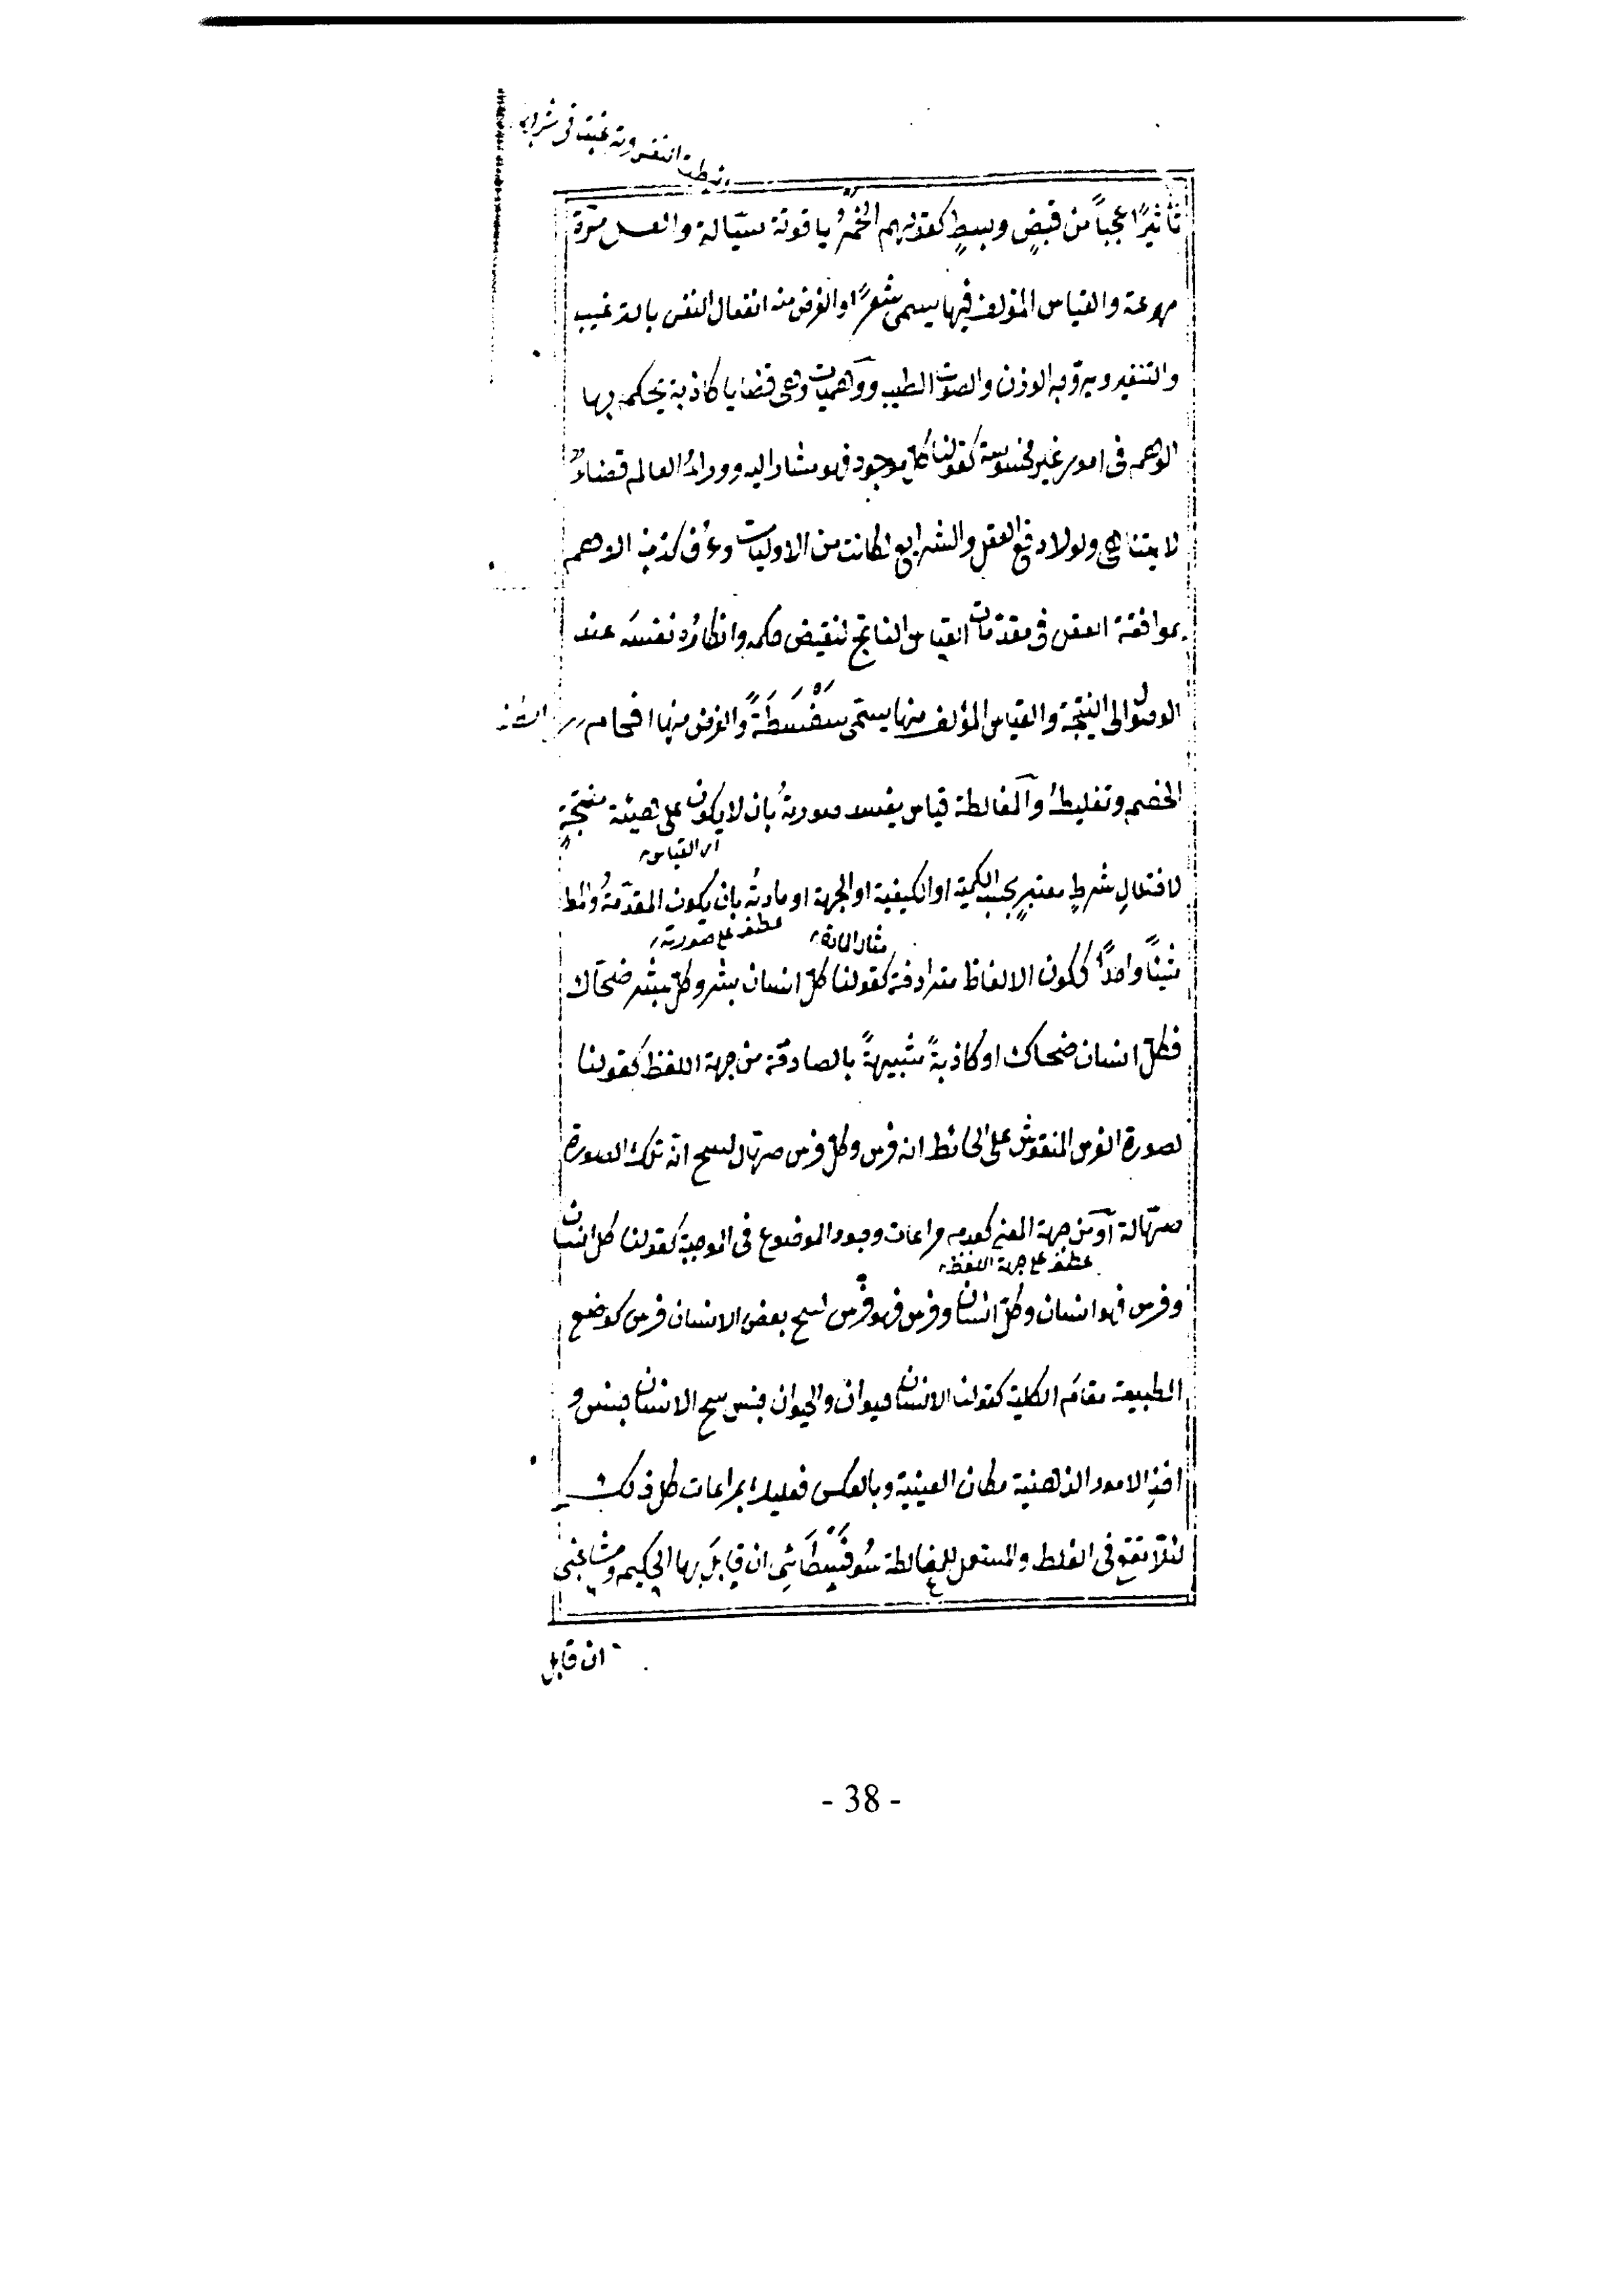 تنبسط النفس وترغبت فى شرابه
تأثيرًا عجبًا من قبضٍ وبسطٍ كقولهم الخمرُ ياقوتة سيّالة والعسل مرّة
مهوعة والقياس المؤلف فيها يسمى شعرًا والغرض منه انفعال النفس بالترغيب
والتنفير ويروّجه الوزن والصوت الطيب ووهميات وهى قضايا كاذبة يحكم بها
الوهم فى امور غير محسوسة كقولنا كل موجود فهو مشار اليه ووراءُ العالم فضاءٌ
لا يتناهى ولولا دفع العقل والشرايع لكانت من الاوليات وعُرف كذب الوهم
بموافقة العقل فى مقدّمات القياس الناتج لنقيض حكمه وانكارُه نفسَه عند
الوصول الى النتيجة والقياس المؤلف منها يسمّى سَفْسَطَةً والغرض منها افحام
الخصم وتغليطُه والمغالطة قياس يفسد صورتُه بان لا يكون على هيئة منتجةٍ
اى القياس
لاختلالِ شرطٍ معتبرٍ بحسب الكمية او الكيفية او الجهة او مادتُه بان يكون المقدّمةُ والمط
عطف على صورته
شيئًا واحدًا ككون الالفاظ مترادفة كقولنا كل انسان بشر وكل بشر ضحّاك
فكلّ انسان ضحاك او كاذبةً شبيهةً بالصادقة من جهة اللفظ كقولنا
لصورة الفرس المنقوش على الحائط انه فرس وكلّ فرس صهّال لينتج انّ تلك الصورة
صهّالة او من جهة المعنى كعدم مراعات وجود الموضوع فى الموجبة كقولنا كل انسان
عطف على جهة اللفظ
وفرس فهو انسان وكلّ انسان وفرس فهو فرس لينتج بعض الانسان فرس كوضع
الطبيعة مقامَ الكلية كقولنا الانسان حيوان والحيوان جنس ينتج الانسان جنس و
اخذِ الامور الذهنية مكان العينية وبالعكس فعليك بمراعات كل ذلك
لئلّا تقع فى الغلط والمستعمل للمغالطة سُوفَسْطَائِى ان قابَلَ بها الحكيم ومشاغبى
ان قابل
- 38 -